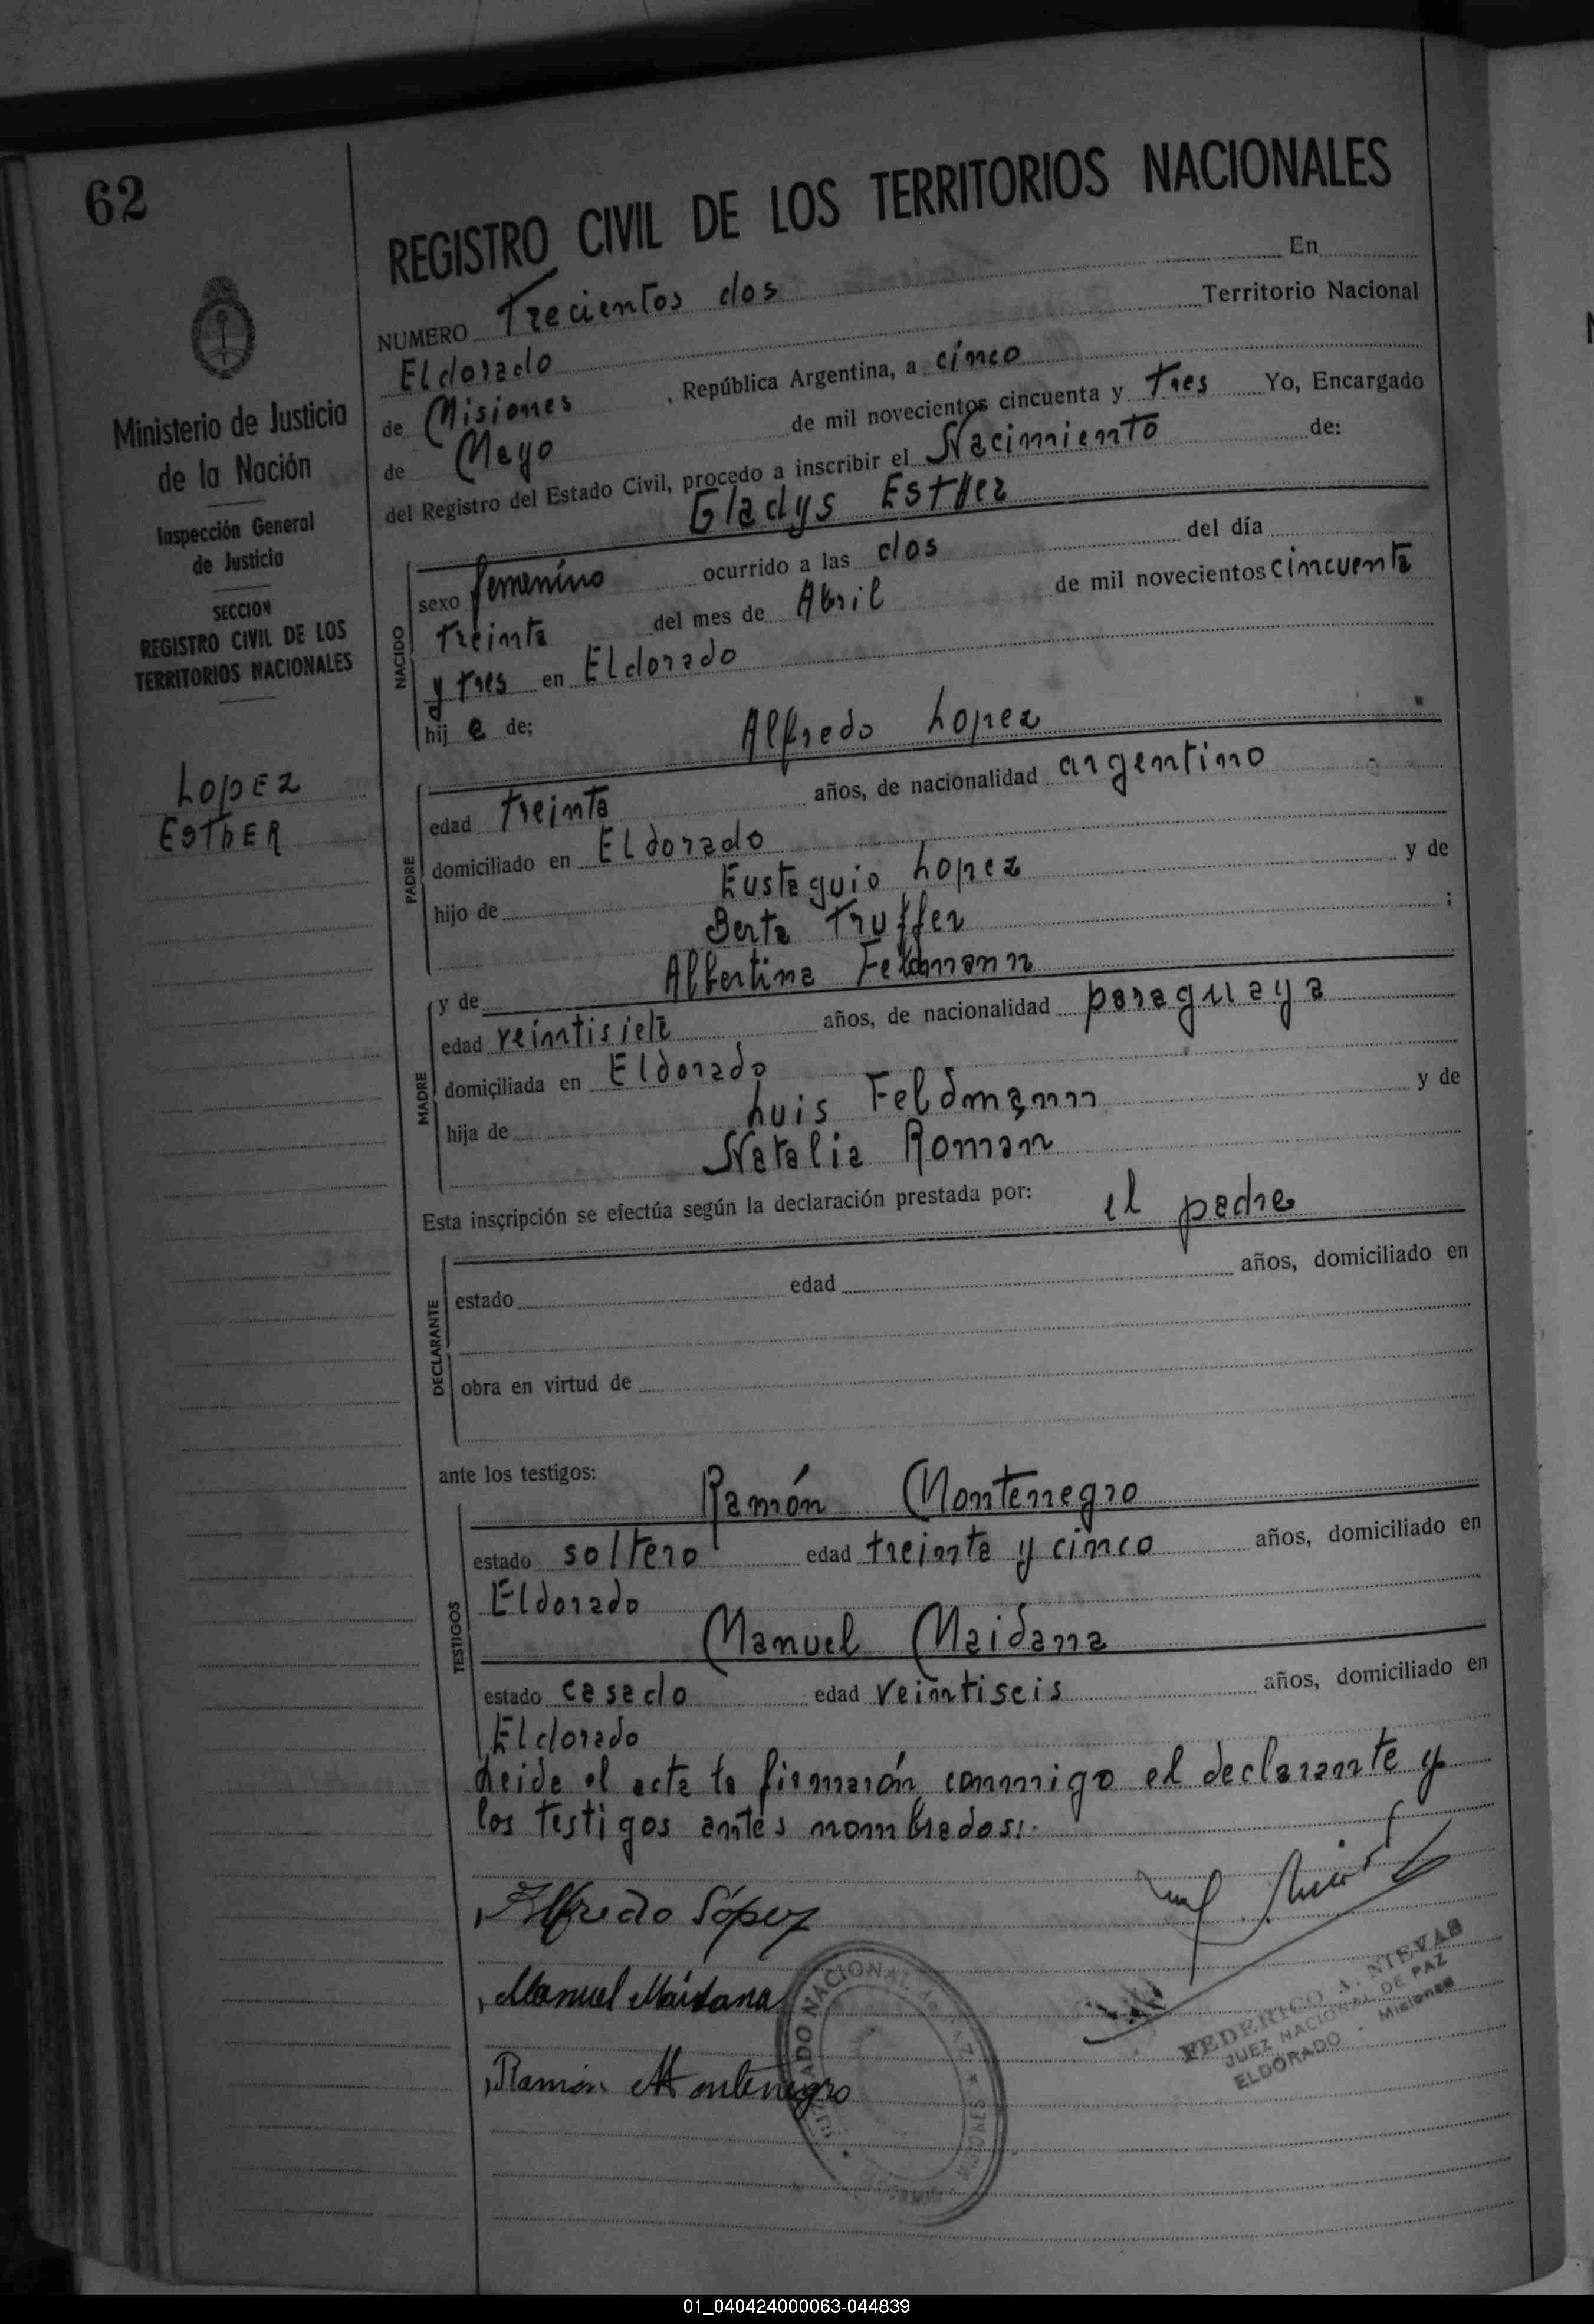 62
Ministerio de Justicia
de la Nación
Inspección General
de Justicia
SECCION
REGISTRO CIVIL DE LOS
TERRITORIOS NACIONALES
LopEz
EsthER
REGISTRO CIVIL DE LOS TERRITORIOS NACIONALES
NUMERO Trecientos dos En
Eldorado Territorio Nacional
de Misiones, República Argentina, a cinco
de Mayo de mil novecientos cincuenta y tres Yo, Encargado
del Registro del Estado Civil, procedo a inscribir el Nacimiento de:
Gladys Esther
NACIDO
sexo femenino ocurrido a las dos del día
treinta del mes de Abril de mil novecientos cincuenta
y tres en Eldorado
hij a de;
Alfredo Lopez
PADRE
edad treinta años, de nacionalidad argentino
domiciliado en Eldorado
hijo de Eustaquio Lopez y de
Berta Truffer ;
y de Albertina Feldmann
MADRE
edad veintisiete años, de nacionalidad paraguaya
domiciliada en Eldorado
hija de Luis Feldmann y de
Natalia Roman
Esta inscripción se efectúa según la declaración prestada por: el padre
DECLARANTE
estado edad años, domiciliado en
obra en virtud de
ante los testigos:
Ramón Montenegro
TESTIGOS
estado soltero edad treinta y cinco años, domiciliado en
Eldorado
Manuel Maidana
estado casado edad veintiseis años, domiciliado en
Eldorado
Leida el acta la firmarón conmigo el declarante y
los testigos antes nombrados:.
Alfredo López
Manuel Maidana
Ramón Montenegro
NACIONAL DE PAZ
MISIONES
FEDERICO A. NIEVAS
JUEZ NACIONAL DE PAZ
ELDORADO - Misiones
01_040424000063-044839